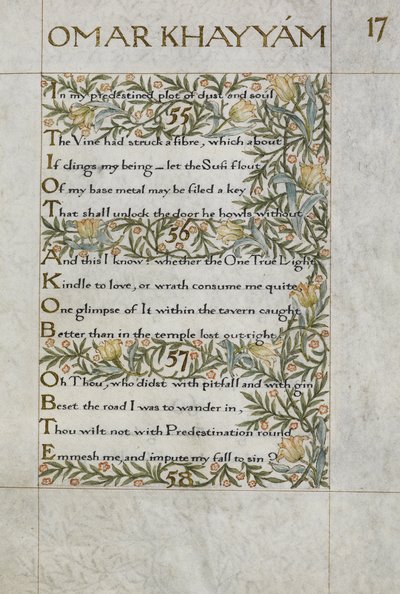 OMAR KHAYYÁM
17
In my predestined plot of dust and soul
55
The Vine had struck a fibre, which about
If clings my being — let the Sufi flout
Of my base metal may be filed a key
That shall unlock the door he howls without
56
And this I know: whether the One True Light
Kindle to love, or wrath consume me quite,
One glimpse of It within the tavern caught
Better than in the temple lost outright
57
Oh Thou, who didst with pitfall and with gin
Beset the road I was to wander in,
Thou wilt not with Predestination round
Emmesh me, and impute my fall to sin?
58